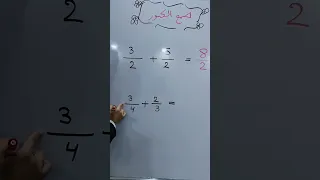 جمع الكسور
3/2 + 5/2 = 8/2
3/4 + 2/3 =